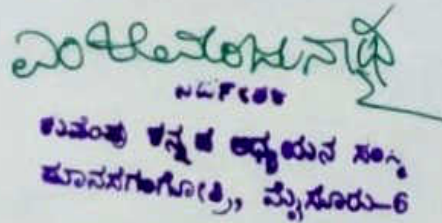 ನಿರ್ದೇಶಕರು
ಕುವೆಂಪು ಕನ್ನಡ ಅಧ್ಯಯನ ಸಂಸ್ಥೆ
ಮಾನಸಗಂಗೋತ್ರಿ, ಮೈಸೂರು-6